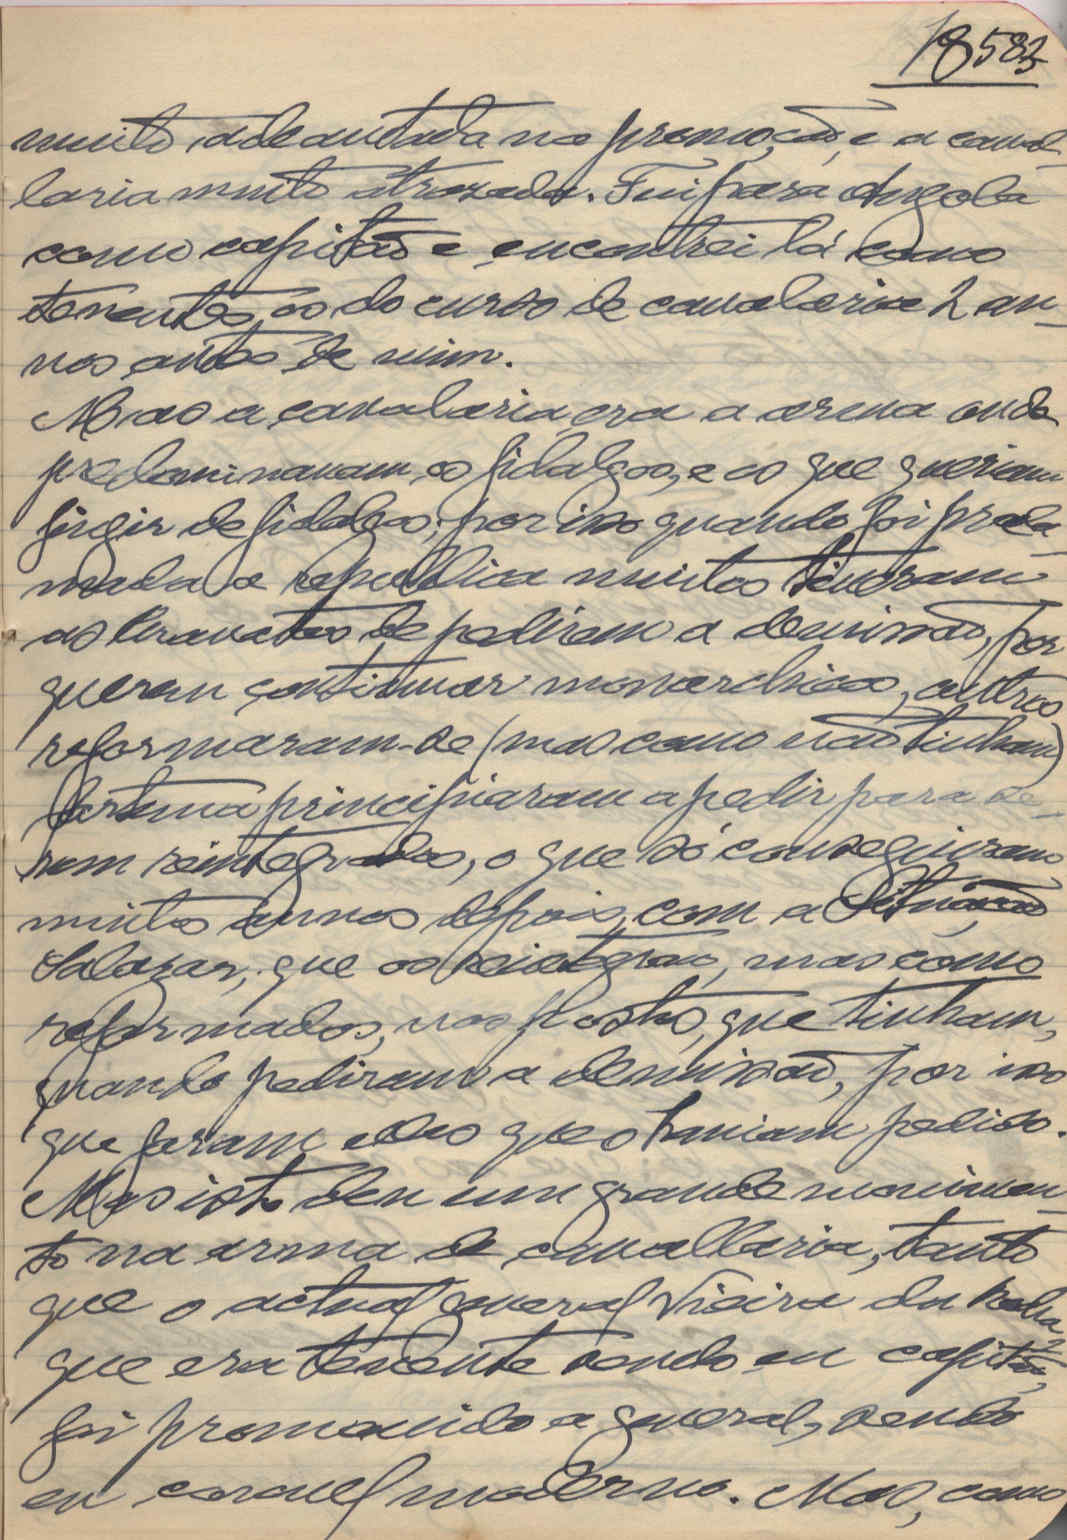 18583
muito adeantada na promoção, e a caval-
laria muito atrazada. Fui para Angola
como capitão e encontrei lá como
tenentes, os do curso de cavalaria 2 an-
nos antes de mim.
Mas a cavalaria, era a arma onde
predominavam, os fidalgos, e os que queriam
fingir de fidalgos, por isso quando foi procla-
mada a republica muitos tiveram
as de pedirem a demissão, por
querem continuar monarchicos, outros
reformaram-se (mas como não tinham)
fortuna principiaram a pedir para se-
rem reintegrados, o que só conseguiram
muitos annos depois, com a Situação
Salazar, que os reintegrou, mas como
reformados, nos postos, que tinham,
quando pediram a demissão, por isso
que foram elles que o haviam pedido.
Mas isto deu um grande movimen-
to na arma de cavallaria, tanto
que o actual general Vieira da Rocha,
que era tenente sendo eu capitão,
foi promovido a general, sendo
eu coronel moderno. Mas, como